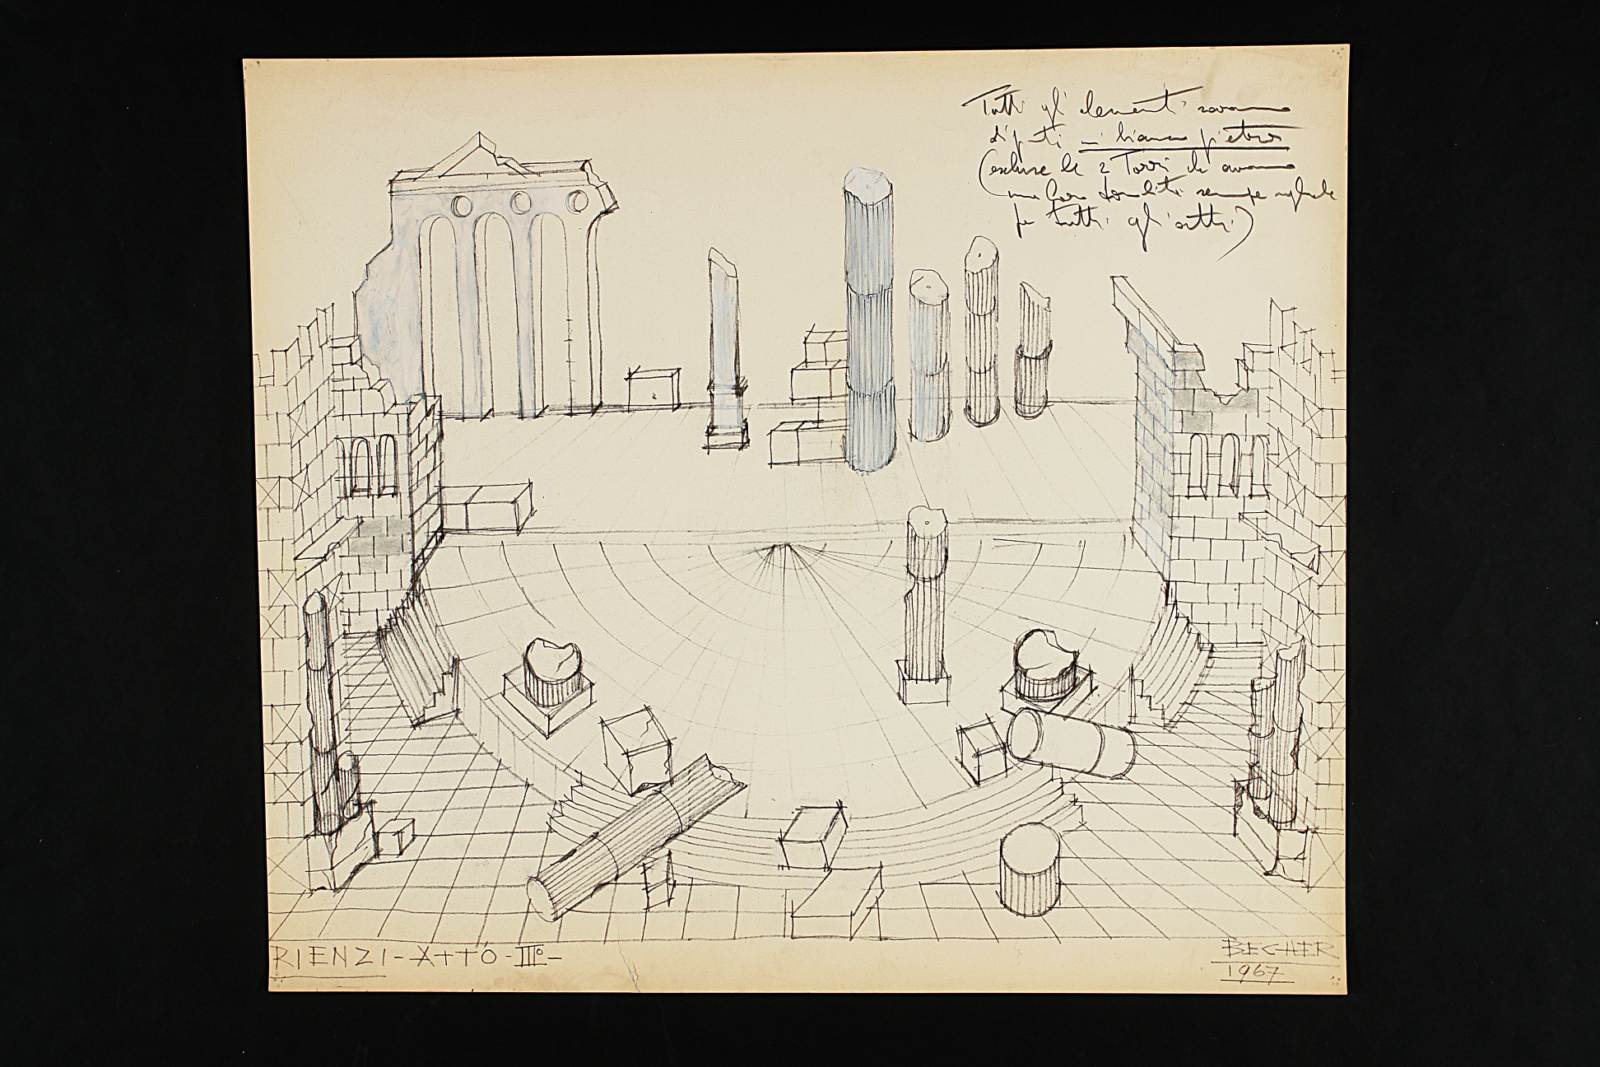 Tutti gli elementi saranno
dipinti in bianco pietra
(escluse le 2 Torri che
sempre
per tutti gli atti)
RIENZI-ATTO-IIIº-
BECHER
1967